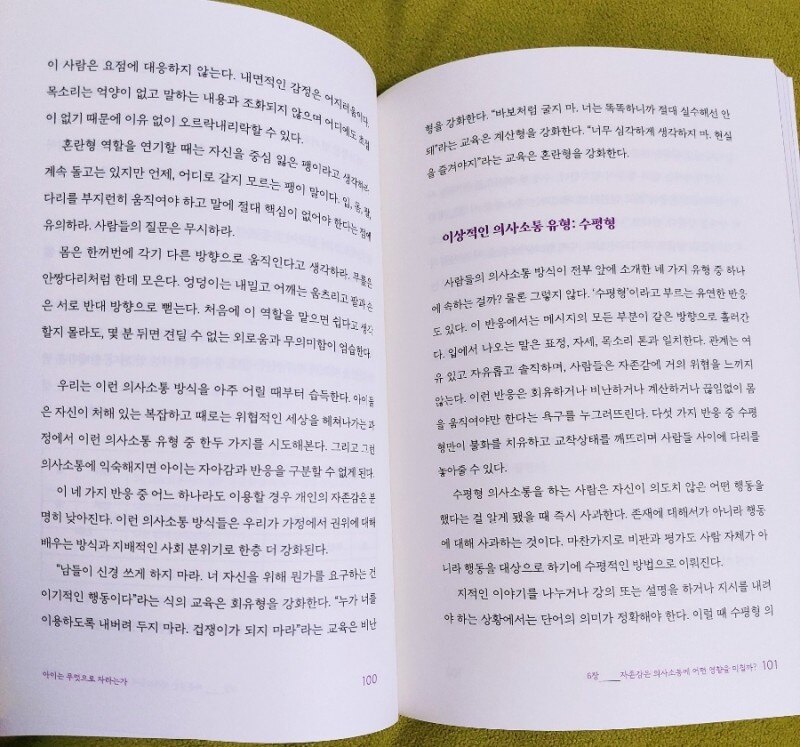 이 사람은 요점에 대응하지 않는다. 내면적인 감정은 어지러움이다.
목소리는 억양이 없고 말하는 내용과 조화되지 않으며 어디에도 초점
이 없기 때문에 이유 없이 오르락내리락할 수 있다.
혼란형 역할을 연기할 때는 자신을 중심 잃은 팽이라고 생각하라.
계속 돌고는 있지만 언제, 어디로 갈지 모르는 팽이 말이다. 입, 몸, 팔,
다리를 부지런히 움직여야 하고 말에 절대 핵심이 없어야 한다는 점에
유의하라. 사람들의 질문은 무시하라.
몸은 한꺼번에 각기 다른 방향으로 움직인다고 생각하라. 무릎은
안짱다리처럼 한데 모은다. 엉덩이는 내밀고 어깨는 움츠리고 팔과 손
은 서로 반대 방향으로 뻗는다. 처음에 이 역할을 맡으면 쉽다고 생각
할지 몰라도, 몇 분 뒤면 견딜 수 없는 외로움과 무의미함이 엄습한다.
우리는 이런 의사소통 방식을 아주 어릴 때부터 습득한다. 아이들
은 자신이 처해 있는 복잡하고 때로는 위협적인 세상을 헤쳐나가는 과
정에서 이런 의사소통 유형 중 한두 가지를 시도해본다. 그리고 그런
의사소통에 익숙해지면 아이는 자아감과 반응을 구분할 수 없게 된다.
이 네 가지 반응 중 어느 하나라도 이용할 경우 개인의 자존감은 분
명히 낮아진다. 이런 의사소통 방식들은 우리가 가정에서 권위에 대해
배우는 방식과 지배적인 사회 분위기로 한층 더 강화된다.
“남들이 신경 쓰게 하지 마라. 너 자신을 위해 뭔가를 요구하는 건
이기적인 행동이다”라는 식의 교육은 회유형을 강화한다. “누가 너를
이용하도록 내버려 두지 마라. 겁쟁이가 되지 마라”라는 교육은 비난
아이는 무엇으로 자라는가
100
형을 강화한다. “바보처럼 굴지 마. 너는 똑똑하니까 절대 실수해선 안
돼”라는 교육은 계산형을 강화한다. “너무 심각하게 생각하지 마. 현실
을 즐겨야지”라는 교육은 혼란형을 강화한다.
이상적인 의사소통 유형: 수평형
사람들의 의사소통 방식이 전부 앞에 소개한 네 가지 유형 중 하나
에 속하는 걸까? 물론 그렇지 않다. ‘수평형’이라고 부르는 유연한 반응
도 있다. 이 반응에서는 메시지의 모든 부분이 같은 방향으로 흘러간
다. 입에서 나오는 말은 표정, 자세, 목소리 톤과 일치한다. 관계는 여
유 있고 자유롭고 솔직하며, 사람들은 자존감에 거의 위협을 느끼지
않는다. 이런 반응은 회유하거나 비난하거나 계산하거나 끊임없이 몸
을 움직여야만 한다는 욕구를 누그러뜨린다. 다섯 가지 반응 중 수평
형만이 불화를 치유하고 교착상태를 깨뜨리며 사람들 사이에 다리를
놓아줄 수 있다.
수평형 의사소통을 하는 사람은 자신이 의도치 않은 어떤 행동을
했다는 걸 알게 됐을 때 즉시 사과한다. 존재에 대해서가 아니라 행동
에 대해 사과하는 것이다. 마찬가지로 비판과 평가도 사람 자체가 아
니라 행동을 대상으로 하기에 수평적인 방법으로 이뤄진다.
지적인 이야기를 나누거나 강의 또는 설명을 하거나 지시를 내려
야 하는 상황에서는 단어의 의미가 정확해야 한다. 이럴 때 수평형 의
6장 ____ 자존감은 의사소통에 어떤 영향을 미칠까? 101